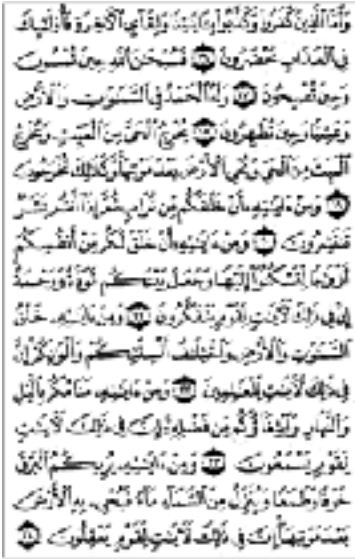 وَأَمَّا الَّذِينَ كَفَرُوا وَكَذَّبُوا بِآيَاتِنَا وَلِقَاءِ الْآخِرَةِ فَأُولَٰئِكَ
فِي الْعَذَابِ مُحْضَرُونَ ١٦ فَسُبْحَانَ اللَّهِ حِينَ تُمْسُونَ
وَحِينَ تُصْبِحُونَ ١٧ وَلَهُ الْحَمْدُ فِي السَّمَاوَاتِ وَالْأَرْضِ
وَعَشِيًّا وَحِينَ تُظْهِرُونَ ١٨ يُخْرِجُ الْحَيَّ مِنَ الْمَيِّتِ وَيُخْرِجُ
الْمَيِّتَ مِنَ الْحَيِّ وَيُحْيِي الْأَرْضَ بَعْدَ مَوْتِهَا وَكَذَٰلِكَ تُخْرَجُونَ
١٩ وَمِنْ آيَاتِهِ أَنْ خَلَقَكُمْ مِنْ تُرَابٍ ثُمَّ إِذَا أَنْتُمْ بَشَرٌ
تَنْتَشِرُونَ ٢٠ وَمِنْ آيَاتِهِ أَنْ خَلَقَ لَكُمْ مِنْ أَنْفُسِكُمْ
أَزْوَاجًا لِتَسْكُنُوا إِلَيْهَا وَجَعَلَ بَيْنَكُمْ مَوَدَّةً وَرَحْمَةً
إِنَّ فِي ذَٰلِكَ لَآيَاتٍ لِقَوْمٍ يَتَفَكَّرُونَ ٢١ وَمِنْ آيَاتِهِ خَلْقُ
السَّمَاوَاتِ وَالْأَرْضِ وَاخْتِلَافُ أَلْسِنَتِكُمْ وَأَلْوَانِكُمْ إِنَّ
فِي ذَٰلِكَ لَآيَاتٍ لِلْعَالِمِينَ ٢٢ وَمِنْ آيَاتِهِ مَنَامُكُمْ بِاللَّيْلِ
وَالنَّهَارِ وَابْتِغَاؤُكُمْ مِنْ فَضْلِهِ إِنَّ فِي ذَٰلِكَ لَآيَاتٍ
لِقَوْمٍ يَسْمَعُونَ ٢٣ وَمِنْ آيَاتِهِ يُرِيكُمُ الْبَرْقَ
خَوْفًا وَطَمَعًا وَيُنَزِّلُ مِنَ السَّمَاءِ مَاءً فَيُحْيِي بِهِ الْأَرْضَ
بَعْدَ مَوْتِهَا إِنَّ فِي ذَٰلِكَ لَآيَاتٍ لِقَوْمٍ يَعْقِلُونَ ٢٤